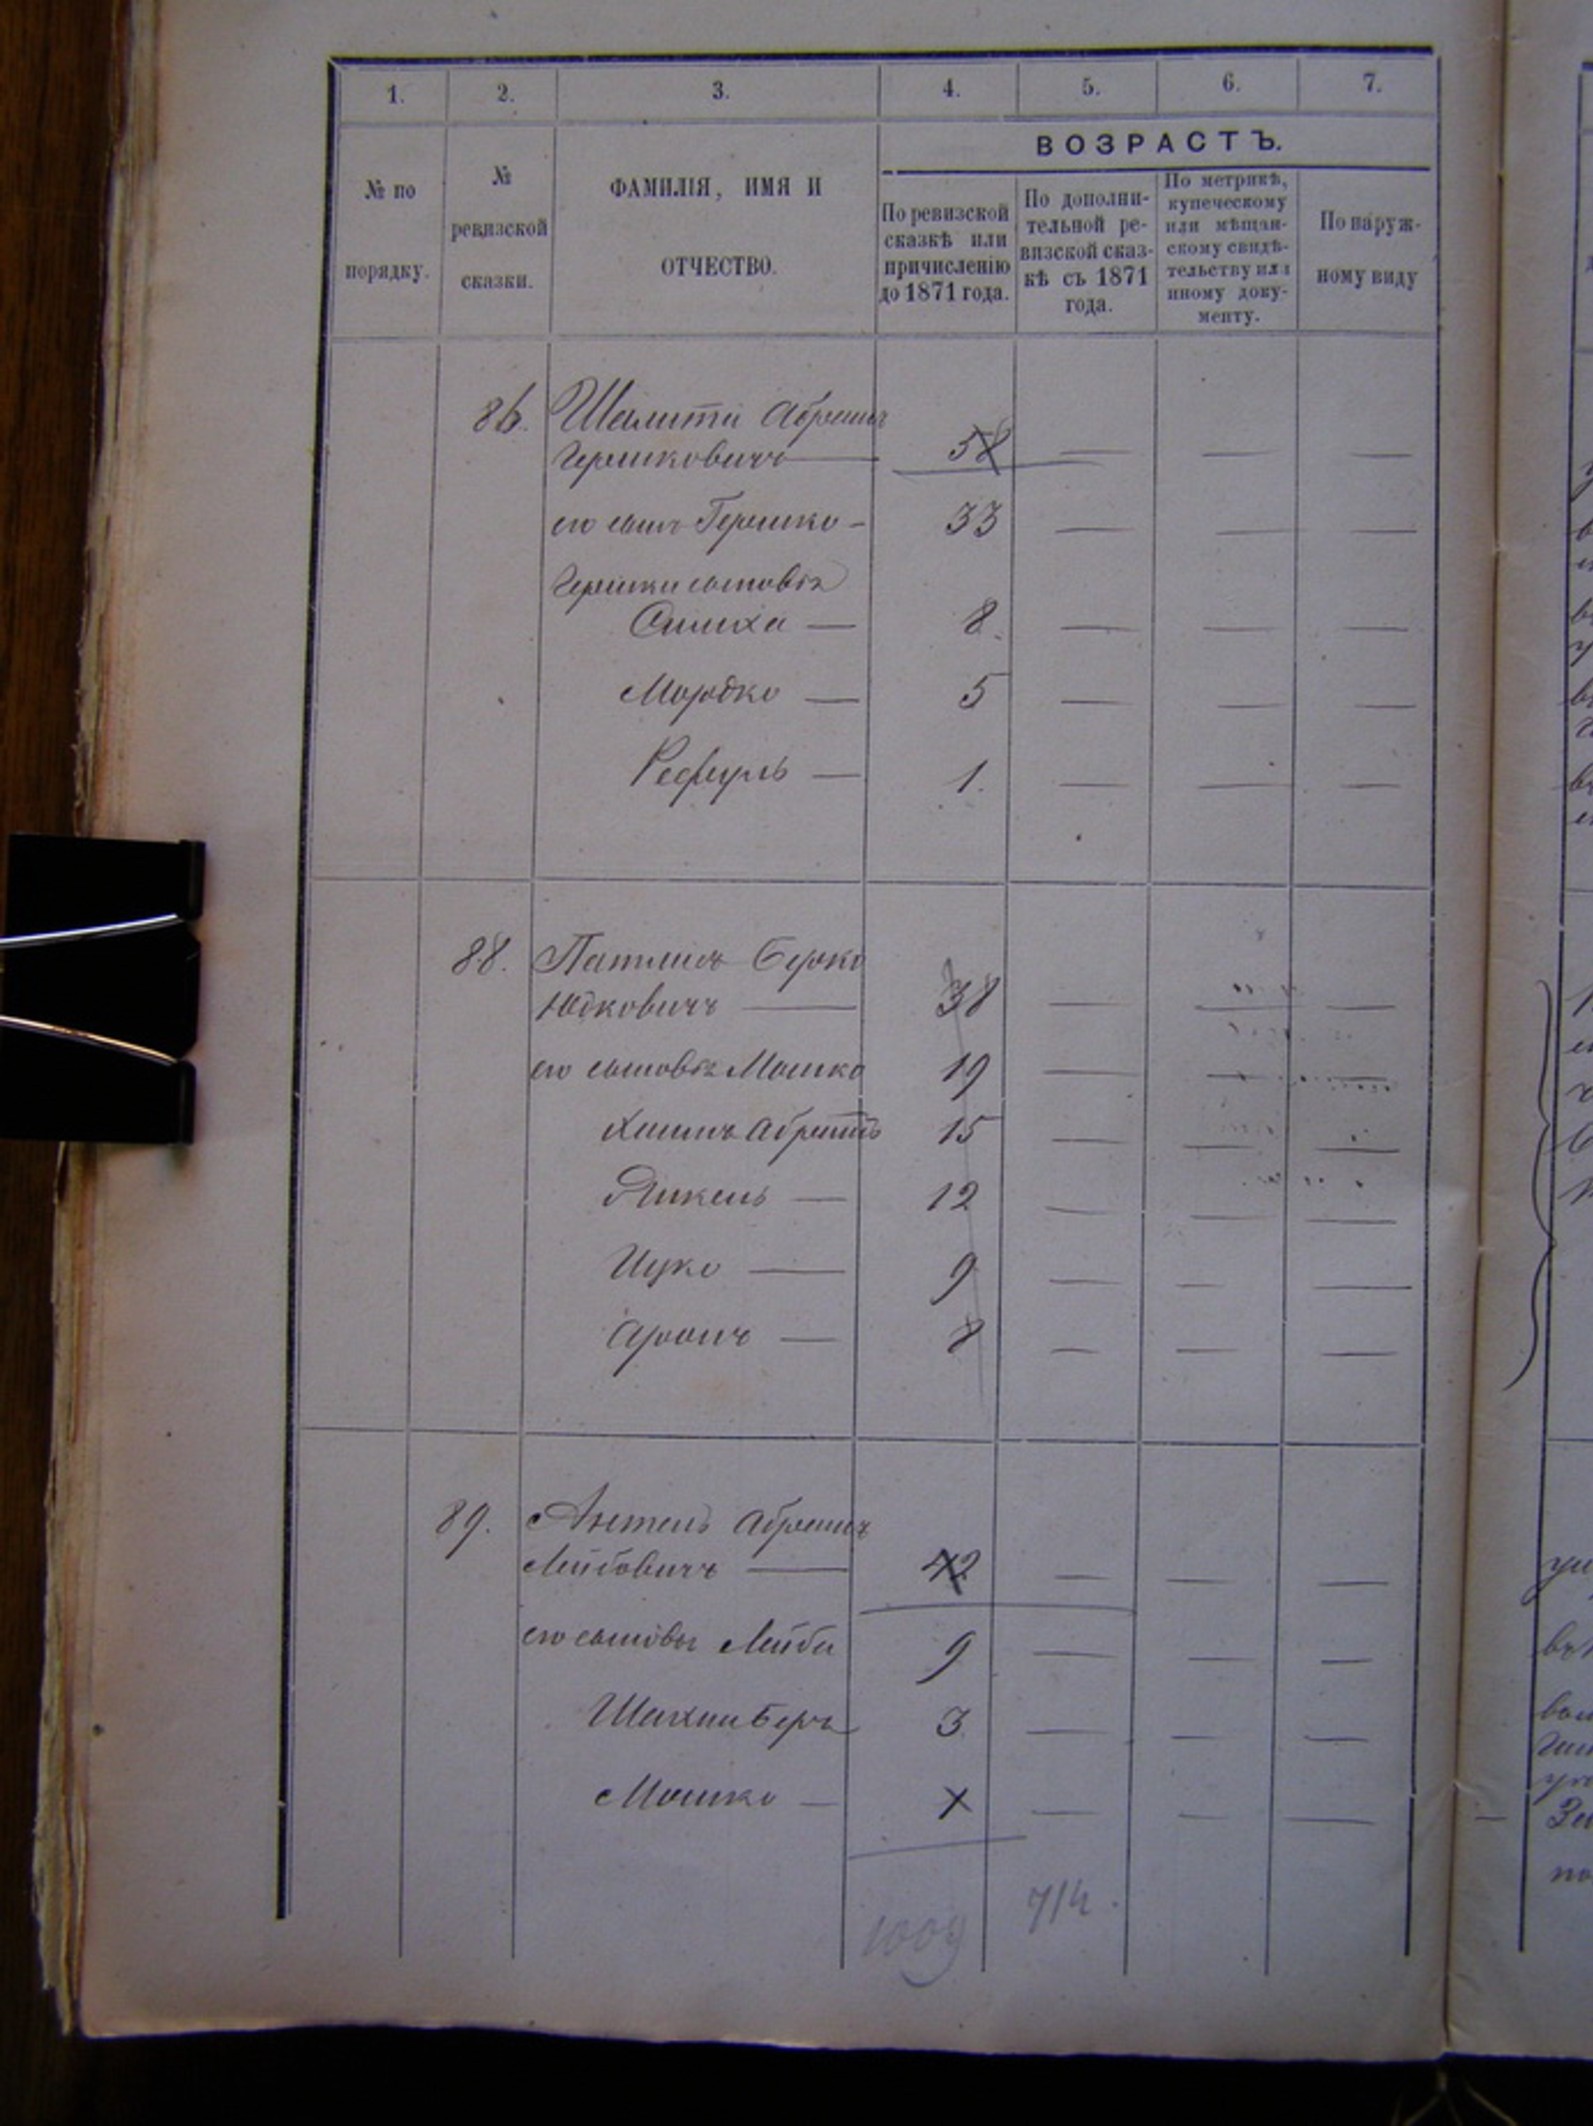 1. 2. 3. 4. 5. 6. 7.
ВОЗРАСТЪ.
№ по
порядку.
№
ревизской
сказки.
ФАМИЛІЯ, ИМЯ И
ОТЧЕСТВО.
По ревизской
сказкѣ или
причисленію
до 1871 года.
По дополни-
тельной ре-
визской сказ-
кѣ съ 1871
года.
По метрикѣ,
купеческому
или мѣщан-
скому свидѣ-
тельству или
иному доку-
менту.
По наруж-
ному виду
86. Абрамъ
Гершковичъ — 58 — — —
его сынъ Гершко — 33 — — —
Гершки сыновья
Симха — 8. — — —
Мордко — 5 — — —
Рефуль — 1. — — —
88. Берко
Юдковичъ — 38 — — —
его сыновья Мошко 19 — — —
Хаимъ Абрамъ 15 — — —
Янкель — 12 — — —
Ицко — 9 — — —
Аронъ — 8 — — —
89. Абрамъ
Лейбовичъ — 42 — — —
его сыновья Лейба 9 — — —
Беръ 3 — — —
Мошко — — — —
1009 714.